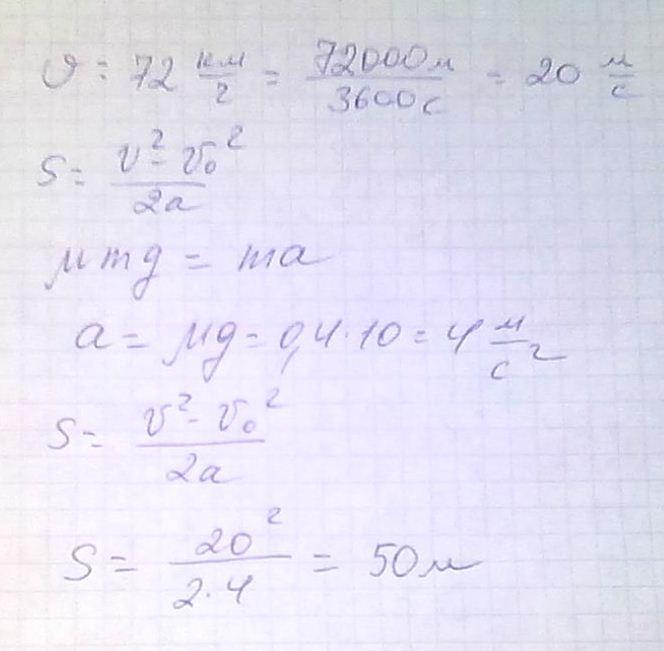 υ = 72 км/г = 72000м/3600с = 20 м/с
S = (v² - v₀²)/2a
μmg = ma
a = μg = 0,4·10 = 4 м/с²
S = (v² - v₀²)/2a
S = 20²/2·4 = 50м